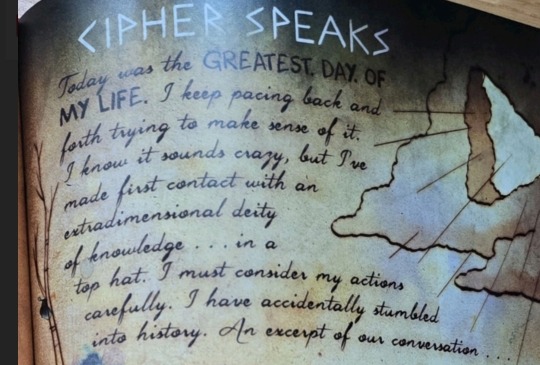 CIPHER SPEAKS
Today was the GREATEST. DAY. OF
MY LIFE. I keep pacing back and
forth trying to make sense of it.
I know it sounds crazy, but I've
made first contact with an
extradimensional deity
of knowledge . . . in a
top hat. I must consider my actions
carefully. I have accidentally stumbled
into history. An excerpt of our conversation . . . .